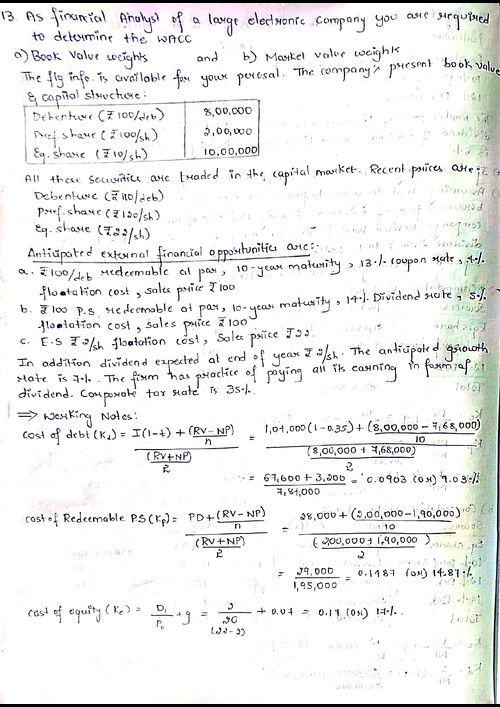 13. As financial Analyst of a large electronic company you are required
to determine the WACC
a) Book Value weights and b) Market value weights
The flg info. is available for your perusal. The company's present book value
& capital structure:
Debenture (₹100/deb) 8,00,000
Pref. share (₹100/sh) 2,00,000
Eq. share (₹10/sh) 10,00,000
All these securities are traded in the capital market. Recent prices are:
Debenture (₹110/deb)
Pref. share (₹120/sh)
Eq. share (₹22/sh)
Anticipated external financial opportunities are:-
a. ₹100/deb redeemable at par, 10-year maturity, 13% coupon rate, 4%
floatation cost, sales price ₹100
b. ₹100 P.S. redeemable at par, 10-year maturity, 14% Dividend rate, 5%
floatation cost, sales price ₹100
c. E.S ₹2/sh floatation cost, Sales price ₹22.
In addition dividend expected at end of year ₹2/sh. The anticipated growth
rate is 7%. The firm has practice of paying all its earning in form of
dividend. Corporate tax rate is 35%.
⇒ Working Notes:
Cost of debt (Kd) = I(1-t) + (RV-NP)/n / (RV+NP)/2 = 1,04,000(1-0.35) + (8,00,000 - 7,68,000)/10 / (8,00,000 + 7,68,000)/2
= 67,600 + 3,200 / 7,84,000 = 0.0903 (or) 9.03%
Cost of Redeemable PS (Kp) = PD + (RV-NP)/n / (RV+NP)/2 = 28,000 + (2,00,000 - 1,90,000)/10 / (2,00,000 + 1,90,000)/2
= 29,000 / 1,95,000 = 0.1487 (or) 14.87%
Cost of equity (Ke) = D₁/P₀ + g = 2/20 + 0.07 = 0.17 (or) 17%.
(22-2)